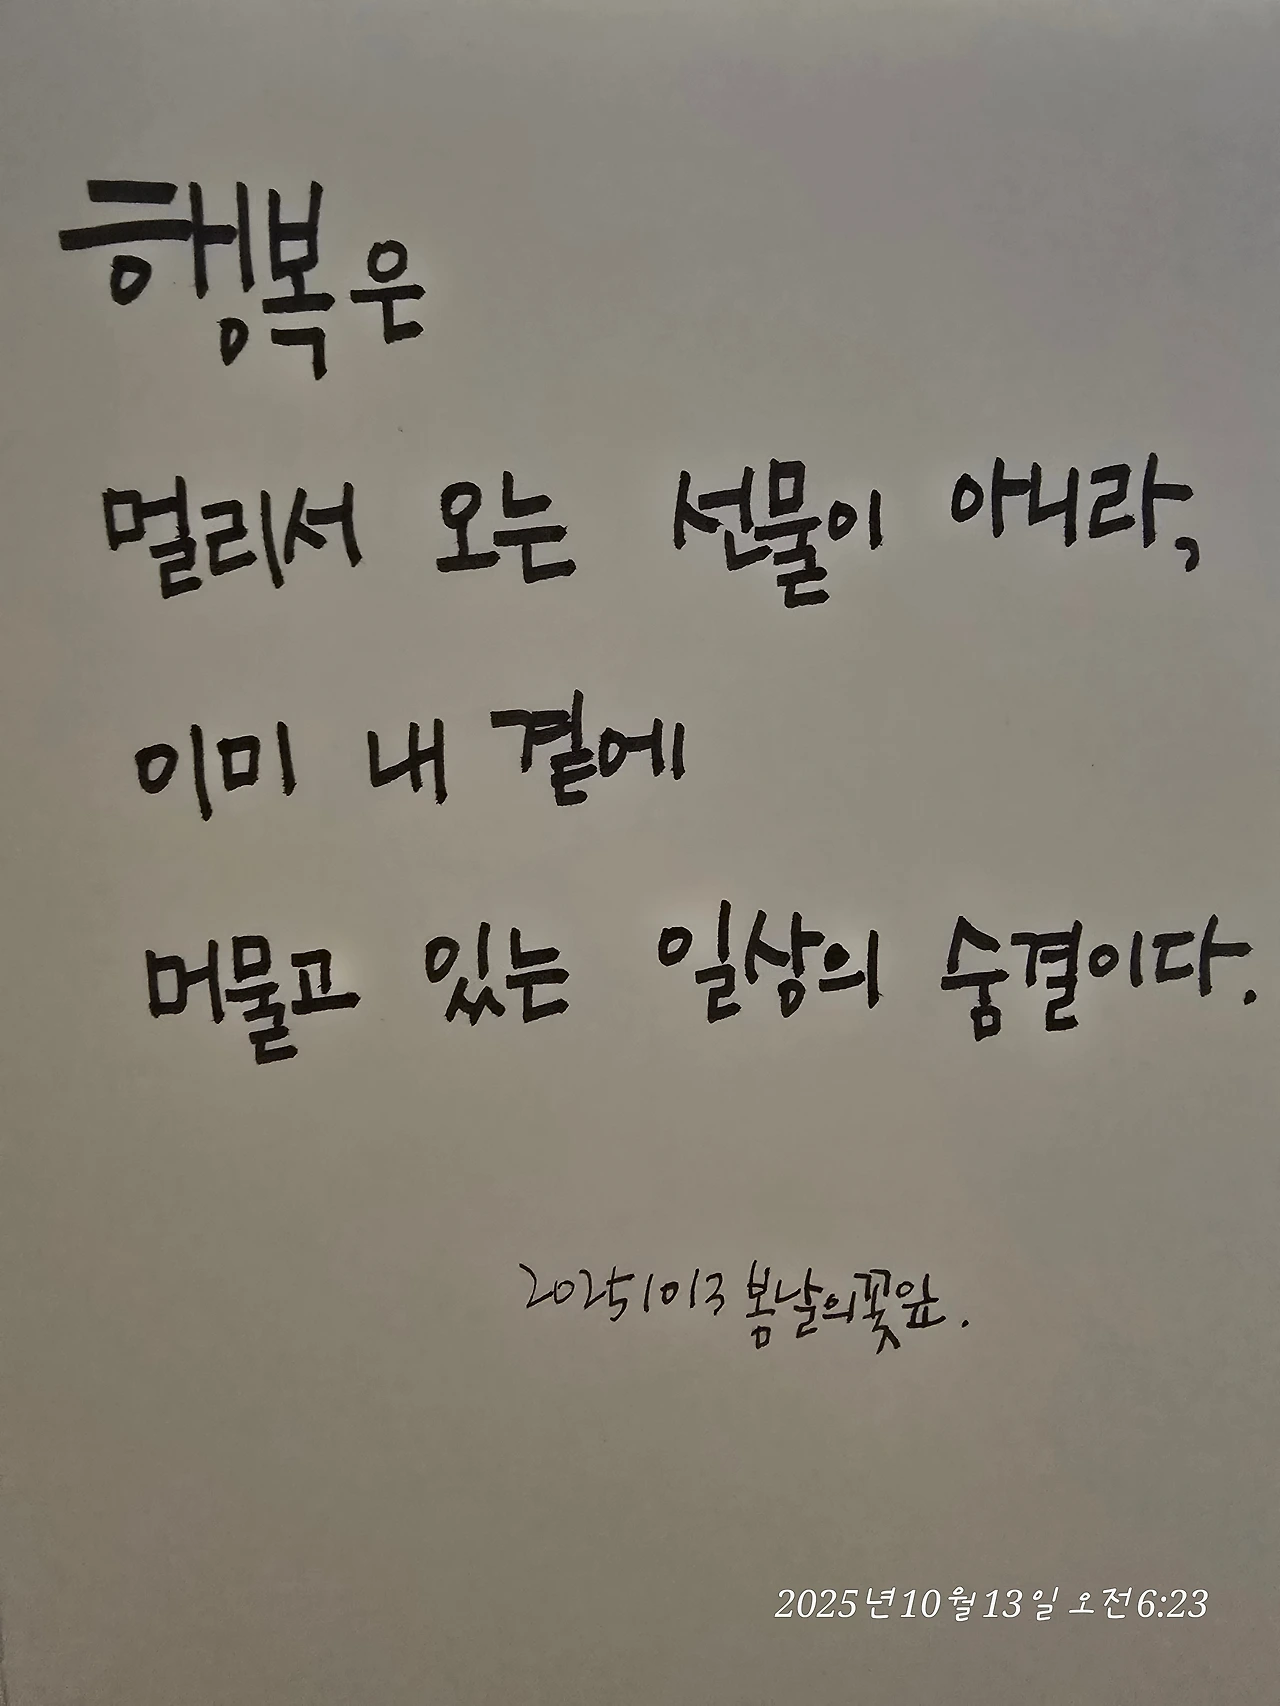 행복은
멀리서 오는 선물이 아니라,
이미 내 곁에
머물고 있는 일상의 숨결이다.
20251013 봄날의꽃잎.
2025년10월13일 오전6:23